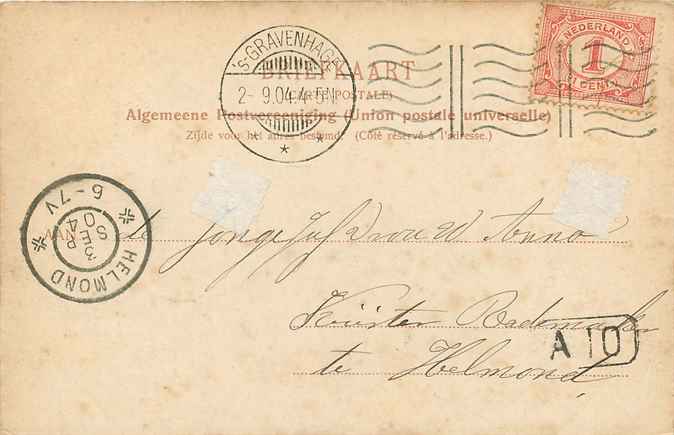 NEDERLAND
1
CENT
'S-GRAVENHAGE
2-9.04.4-5N
* * *
BRIEFKAART
(CARTE POSTALE)
Algemeene Postvereeniging (Union postale universelle)
Zijde voor het adres bestemd. (Côté réservé à l'adresse.)
6-7V
3
SEP
04
HELMOND
AAN de jonge Juffrouw Anna
Küster Rademaker
A 10
te Helmond